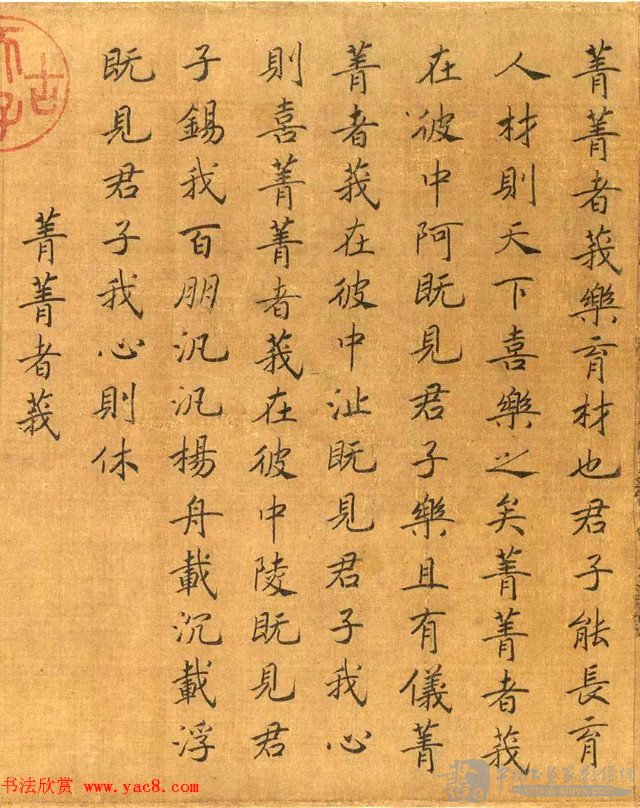 菁菁者莪樂育材也君子能長育
人材則天下喜樂之矣菁菁者莪
在彼中阿既見君子樂且有儀菁
菁者莪在彼中沚既見君子我心
則喜菁菁者莪在彼中陵既見君
子錫我百朋汎汎楊舟載沉載浮
既見君子我心則休
菁菁者莪
书法欣赏 www.yac8.com